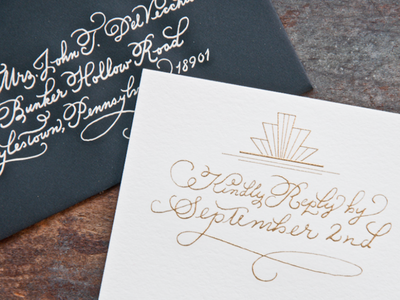 Mrs. John T. DelVecchi
Bunker Hollow Road
ylestown, Pennsylv
18901
Kindly Reply by
September 2nd